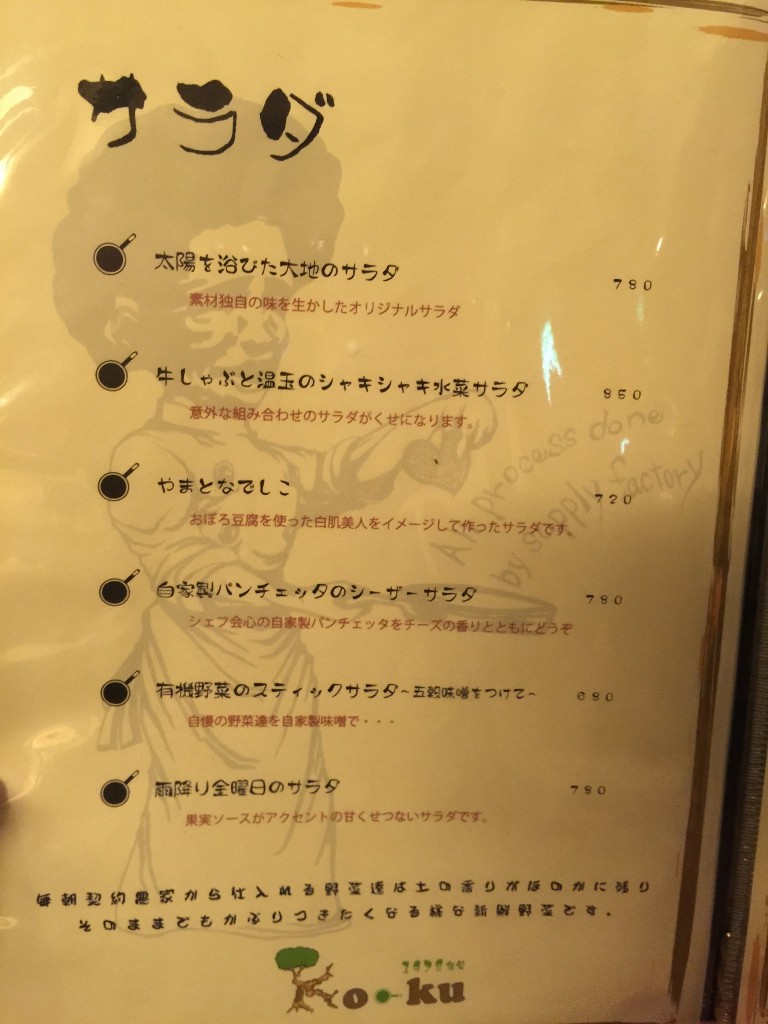 サラダ
太陽を浴びた大地のサラダ 780
素材独自の味を生かしたオリジナルサラダ
牛しゃぶと温玉のシャキシャキ水菜サラダ 850
意外な組み合わせのサラダがくせになります。
やまとなでしこ 720
おぼろ豆腐を使った白肌美人をイメージして作ったサラダです。
自家製パンチェッタのシーザーサラダ 780
シェフ会心の自家製パンチェッタをチーズの香りとともにどうぞ
有機野菜のスティックサラダ~五穀味噌をつけて~ 680
自慢の野菜達を自家製味噌で・・・
雨降り金曜日のサラダ 780
果実ソースがアクセントの甘くせつないサラダです。
All process done
by supply factory
毎朝契約農家から仕入れる野菜達は土の香りがほのかに残り
そのままでもかぶりつきたくなる様な新鮮野菜です。
Ko-ku